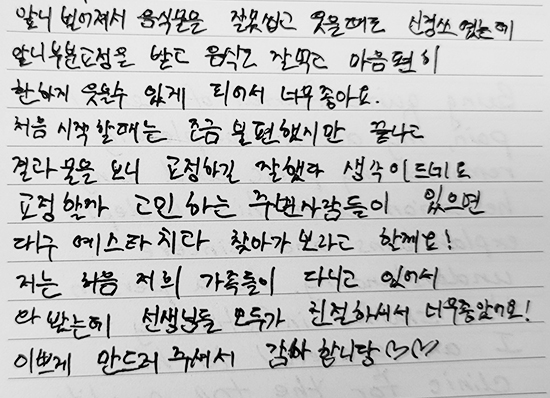 앞니 벌어져서 음식물을 잘못씹고 웃을때도 신경쓰였는데
앞니부분교정을 받고 음식도 잘먹고 마음편히
환하게 웃을수 있게 되어서 너무좋아요.
처음 시작할때는 조금 불편했지만 끝나고
결과물을 보니 교정하길 잘했다 생각이드네요
교정할까 고민하는 주변사람들이 있으면
대구 예스타치과 찾아가보라고 할께요!
저는 처음 저희 가족들이 다니고 있어서
와 봤는데 선생님들 모두가 친절하셔서 너무좋았어요!
이쁘게 만드러 주셔서 감사합니당♡♡